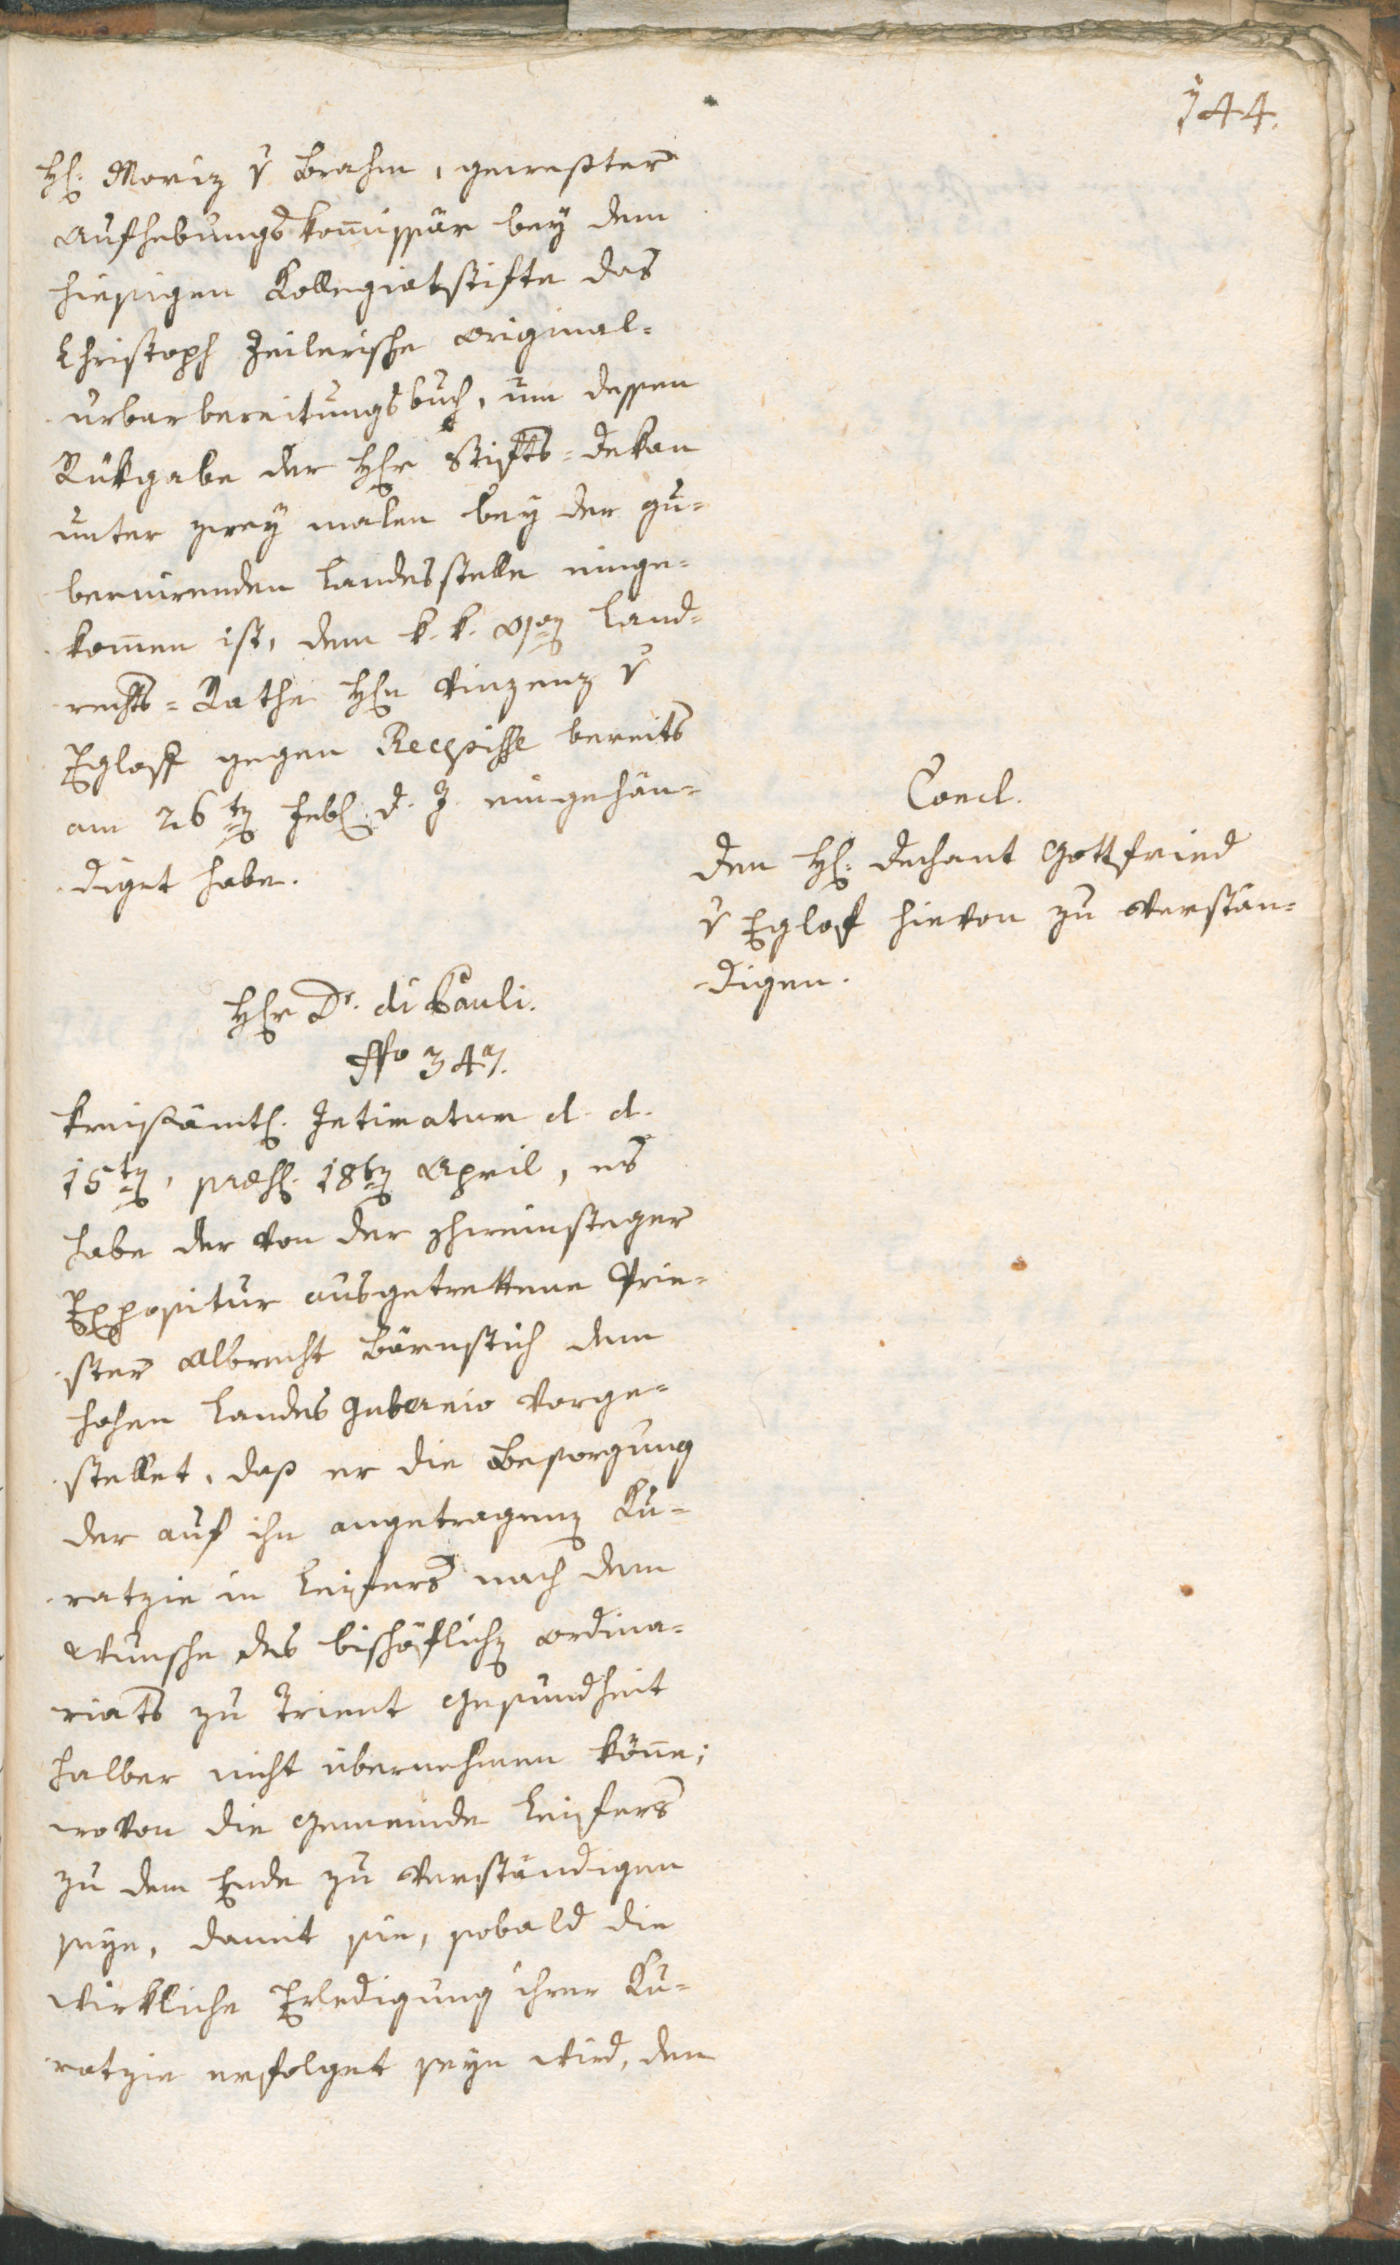 144.
H. Moriz v Brahm, gewester
Aufhebungskom̅issär bey dem
hiesigen Kollegiatstifte das
Christoph Zeilerische Original-
urbarbereitungsbuch, um dessen
Rükgabe der Hr Stifts-Dekan
unter zwey malen bey der gu-
bernirenden Landesstelle einge-
kom̅en ist, dem k. k. Land-
rechts-Rathe Hn Vinzenz v
Egloff gegen Recepisse bereits
am 26ten Feb. d. J. eingehän-
diget habe.
Concl.
Den H. Dechant Gottfried
v Eglof hievon zu verstän-
digen.
Hr Dr. di Pauli.
Nro 347.
Kreisämtl. Intimatum d. d.
15ten, præs. 18ten April, es
habe der von der Schweinsteger
Expositur ausgetrettene Prie-
ster Albrecht Bärnstich dem
hohen Landes Gubernio vorge-
stellet, daß er die Besorgung
der auf ihn angetragenen Ku-
ratzie in Leifers nach dem
Wunsche des bischöflichen Ordina-
riats zu Trient Gesundheit
halber nicht übernehmen kön̅e;
wovon die Gemeinde Leifers
zu dem Ende zu verständigen
seye, damit sie, sobald die
wirkliche Erledigung ihrer Ku-
ratzie erfolget seyn wird, den